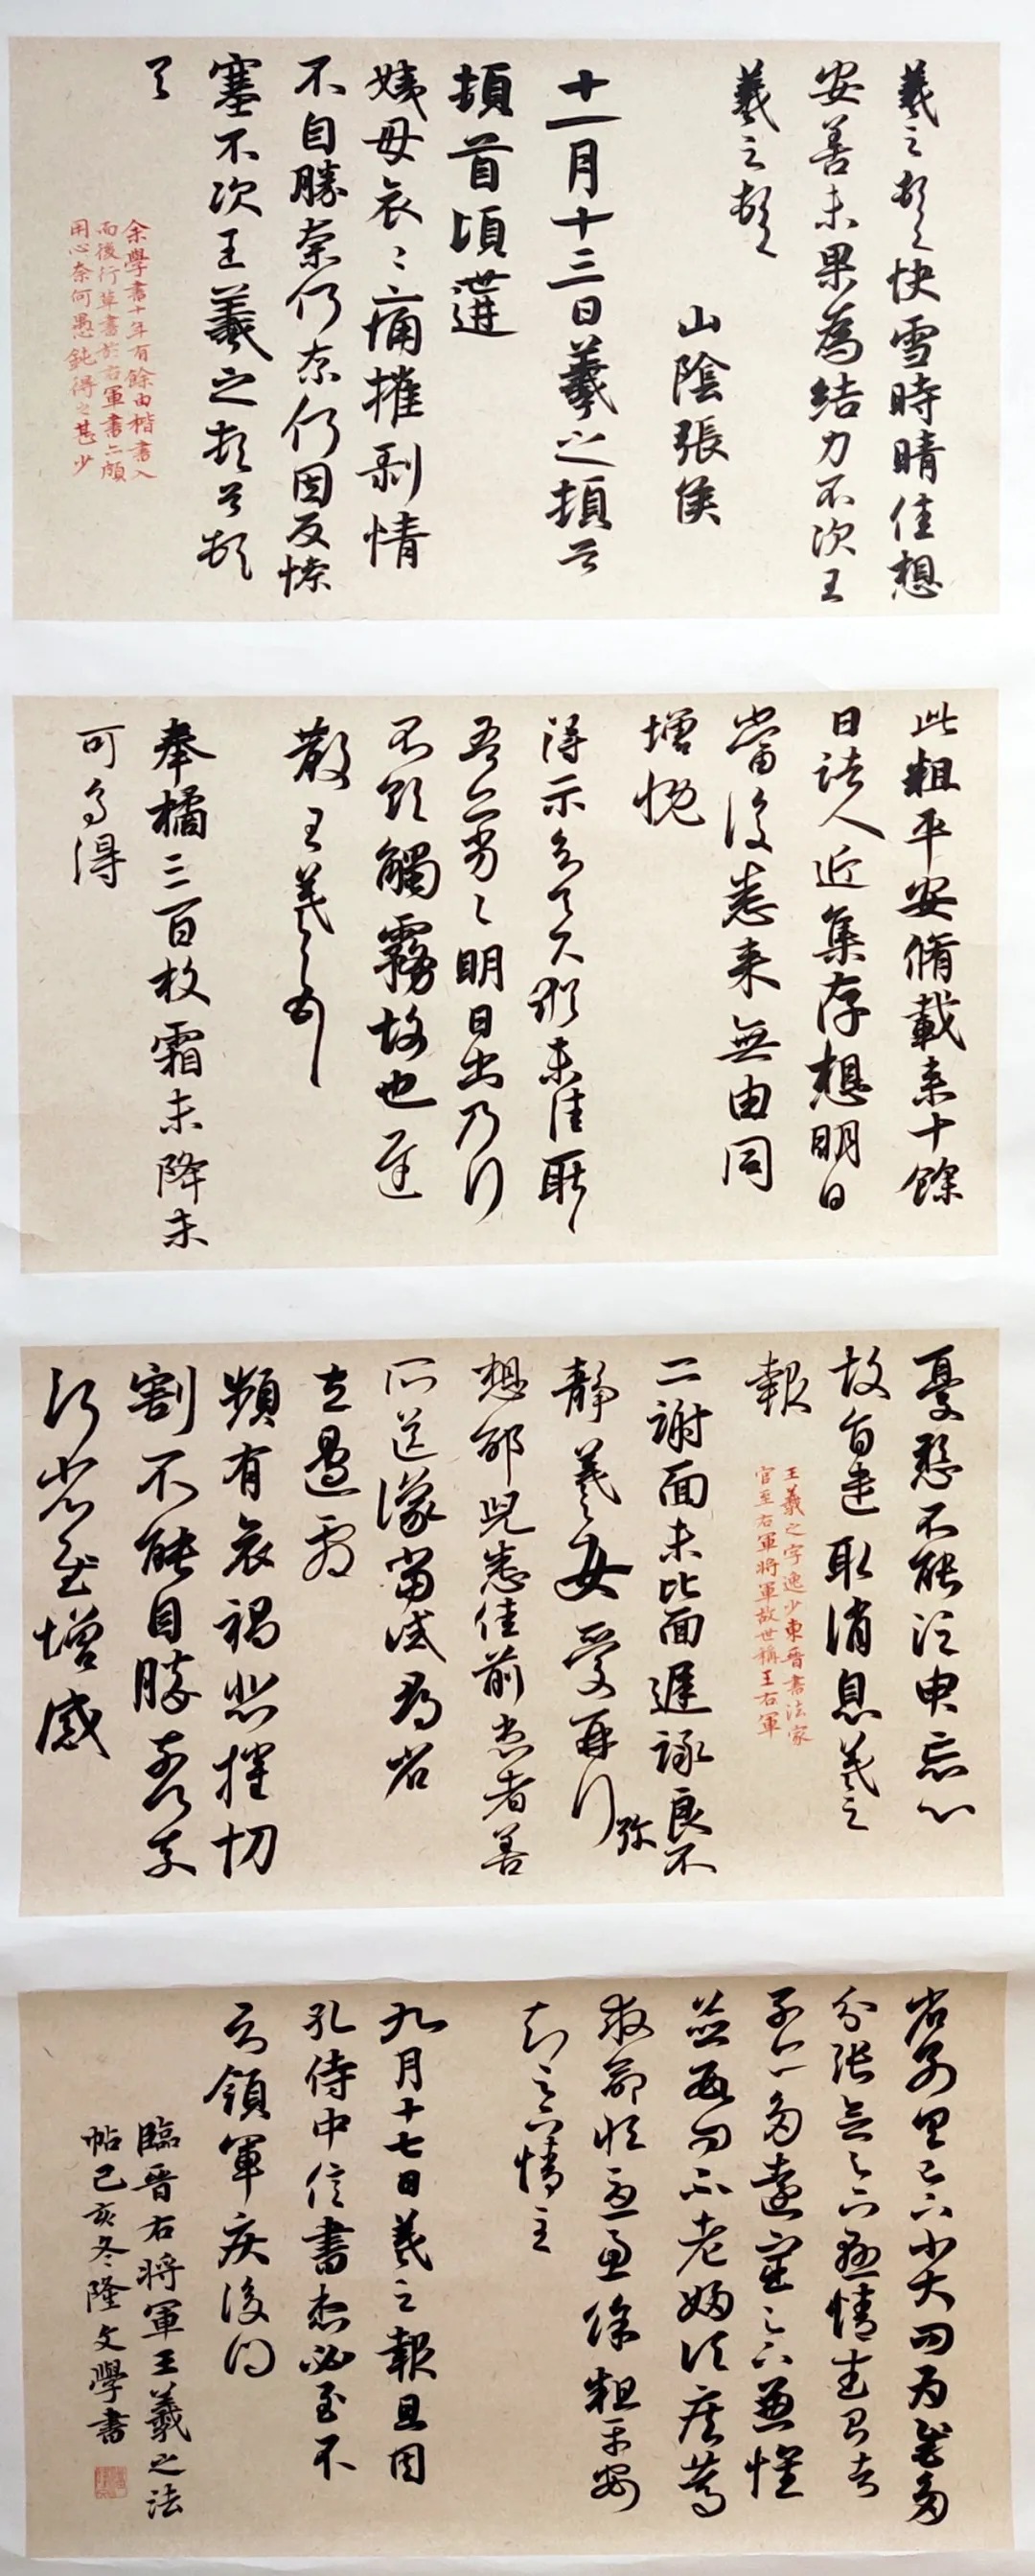 羲之頓首快雪時晴佳想
安善未果為結力不次王
羲之頓首
山陰張侯
十一月十三日羲之頓首
頓首頃遘
姨母哀〻痛摧剥情
不自勝奈何奈何因反慘
塞不次王羲之頓首頓
首
余學書十年有餘由楷書入
而後行草書於右軍書亦頗
用心奈何愚鈍得之甚少
此粗平安脩載来十餘
日諸人近集存想明日
當復悉来無由同
增慨
得示知足下猶未佳耿〻
吾亦劣〻明日出乃行
不欲觸霧故也遲
散王羲之頓首
奉橘三百枚霜未降未
可多得
憂懸不能須臾忘心
故旨遣取消息羲之
報
王羲之字逸少東晉書法家
官至右軍將軍故世稱王右軍
二謝面未比面遲詠良不
靜羲之女愛再拜
想邰兒悉佳前患者善
所送議當試尋省
左邊劇
頻有哀禍悲摧切
割不能自勝奈何奈
何省慰增感
省別具足下小大問为慰多
分張念足下懸情武昌諸
子亦多遠宦足下兼懷
並數問不老婦頃疾篤
救命恒憂慮餘粗平安
知足下情至
九月十七日羲之報且因
孔侍中信書想必至不
知領軍疾後問
臨晉右將軍王羲之法
帖己亥冬隆文學書